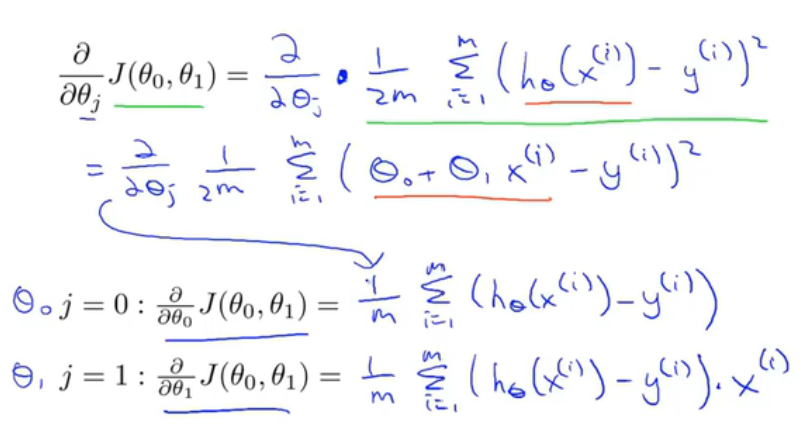 ∂/∂θⱼ J(θ₀, θ₁) = ∂/∂θⱼ · 1/2m Σᵢ₌₁ᵐ (h_θ(x⁽ⁱ⁾) − y⁽ⁱ⁾)²
= ∂/∂θⱼ 1/2m Σᵢ₌₁ᵐ (θ₀ + θ₁ x⁽ⁱ⁾ − y⁽ⁱ⁾)²
θ₀ j = 0 : ∂/∂θ₀ J(θ₀, θ₁) = 1/m Σᵢ₌₁ᵐ (h_θ(x⁽ⁱ⁾) − y⁽ⁱ⁾)
θ₁ j = 1 : ∂/∂θ₁ J(θ₀, θ₁) = 1/m Σᵢ₌₁ᵐ (h_θ(x⁽ⁱ⁾) − y⁽ⁱ⁾) · x⁽ⁱ⁾